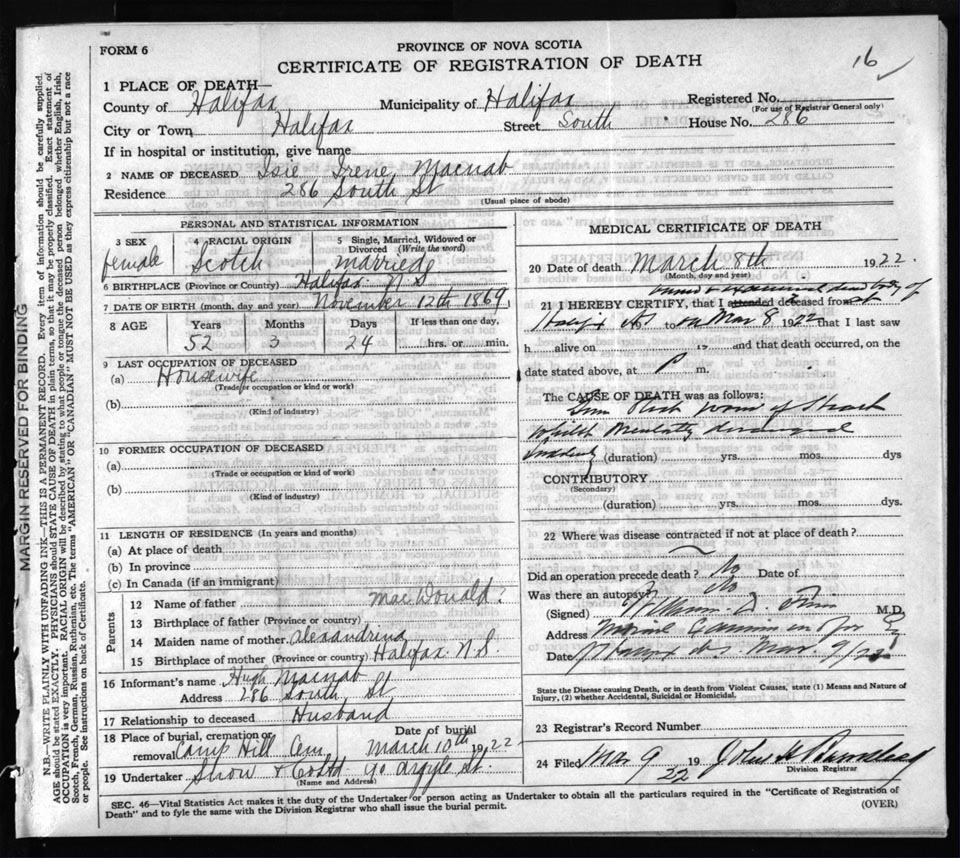 FORM 6
PROVINCE OF NOVA SCOTIA
CERTIFICATE OF REGISTRATION OF DEATH
16
1 PLACE OF DEATH—
County of Halifax Municipality of Halifax Registered No.
(For use of Registrar General only)
City or Town Halifax Street South House No. 286
If in hospital or institution, give name
2 NAME OF DECEASED Isie Irene Macnab
Residence 286 South St
(Usual place of abode)
PERSONAL AND STATISTICAL INFORMATION
3 SEX female
4 RACIAL ORIGIN Scotch
5 Single, Married, Widowed or Divorced (Write the word) married
6 BIRTHPLACE (Province or Country) Halifax N S
7 DATE OF BIRTH (month, day and year) November 12th 1869
8 AGE Years Months Days If less than one day,
52 3 24 hrs. or min.
9 LAST OCCUPATION OF DECEASED
(a) Housewife
(Trade or occupation or kind or work)
(b)
(Kind of industry)
10 FORMER OCCUPATION OF DECEASED
(a)
(Trade or occupation or kind of work)
(b)
(Kind of industry)
11 LENGTH OF RESIDENCE (In years and months)
(a) At place of death
(b) In province
(c) In Canada (if an immigrant)
Parents
12 Name of father MacDonald?
13 Birthplace of father (Province or country)
14 Maiden name of mother Alexandrina
15 Birthplace of mother (Province or country) Halifax N.S.
16 Informant's name Hugh Macnab
Address 286 South St
17 Relationship to deceased Husband
18 Place of burial, cremation or removal Camp Hill Cem Date of burial March 10th 1922
19 Undertaker Snow & Co Ltd 90 Argyle St.
(Name and Address)
MEDICAL CERTIFICATE OF DEATH
20 Date of death March 8th 1922.
(Month, day and year)
examined dead body of
21 I HEREBY CERTIFY, that I attended deceased from at
Halifax NS 19 to on Mar 8 1922 that I last saw
h alive on 19 and that death occurred, on the
date stated above, at P m.
The CAUSE OF DEATH was as follows:
whilst mentally deranged
Suddenly (duration) yrs. mos. dys
CONTRIBUTORY
(Secondary)
(duration) yrs. mos. dys.
22 Where was disease contracted if not at place of death?
Did an operation precede death? No Date of
Was there an autopsy? No
(Signed) William D. Finn M.D.
Address Medical Examiner for
Date Halifax NS. Mar. 9/22
State the Disease causing Death, or in death from Violent Causes, state (1) Means and Nature of Injury, (2) whether Accidental, Suicidal or Homicidal.
23 Registrar's Record Number
24 Filed Mar 9 1922 John
Division Registrar
SEC. 46—Vital Statistics Act makes it the duty of the Undertaker or person acting as Undertaker to obtain all the particulars required in the "Certificate of Registration of
Death" and to fyle the same with the Division Registrar who shall issue the burial permit. (OVER)
MARGIN RESERVED FOR BINDING
N.B.—WRITE PLAINLY WITH UNFADING INK—THIS IS A PERMANENT RECORD. Every item of information should be carefully supplied.
AGE should be stated EXACTLY. PHYSICIANS should STATE CAUSE OF DEATH in plain terms, so that it may be properly classified. Exact statement of
OCCUPATION is very important. RACIAL ORIGIN will be described by stating to what people or tongue the deceased person belonged whether English, Irish,
Scotch, French, German, Russian, Ruthenian, etc. The terms "AMERICAN" OR "CANADIAN" MUST NOT BE USED as they express citizenship but not a race
or people. See instructions on back of Certificate.